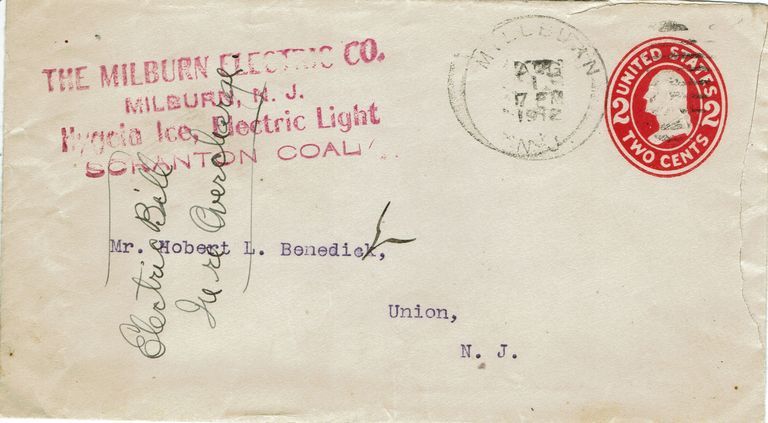 THE MILBURN ELECTRIC CO.
MILBURN, N. J.
Hygeia Ice, Electric Light
SCRANTON COAL
MILLBURN
AUG
1
7 PM
1912
N.J.
UNITED STATES
2 2
TWO CENTS
Electric Bill
In re Overcharge
Mr. Hobert L. Benedick,
Union,
N. J.